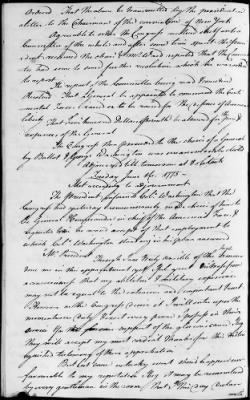 Ordered That the above be transmitted by the president in
a letter to the Chairman of the convention of New York
Agreeable to order the Congress resolved itself into a
Committee of the whole and after some time spent the president
resumed the chair & Mr Ward reported that the
to had come to some farther resolutions which he was
to report
The report of the Committee being read & considered
Resolved That a General be appointed to command the Conti
nental Forces raised or to be raised for the defence of American
liberty
That five hundred Dollars pr Month be allowed for Pay &
expences of the General
The Congress then proceeded to the choice of a General
by Ballot & George Washington was unanimously elected
Adjourned till tomorrow at 8 oClock
Friday June 16. 1775
Met according to adjournment
The President informed Col Washington that the
Congress had yesterday unanimously made choice of him to
be General & Commander in chief of the American Forces &
requested he would accept of that employment to
which Col Washington standing in his place answered
Mr President
Though I am truly sensible of the high honour
done me in this appointment yet I feel great distress from
a consciousness that my abilities & military experience
may not be equal to the extensive and important Trust
However as the Congress desire it I will enter upon the
momentous duty & exert every power I possess in their
service & for support of the glorious cause I beg
they will accept my most cordial Thanks for this distin
guished testimony of their approbation
But lest some unlucky event should happen un
favourable to my reputation I beg it may be remembered
by every gentleman in the room that I this day declare